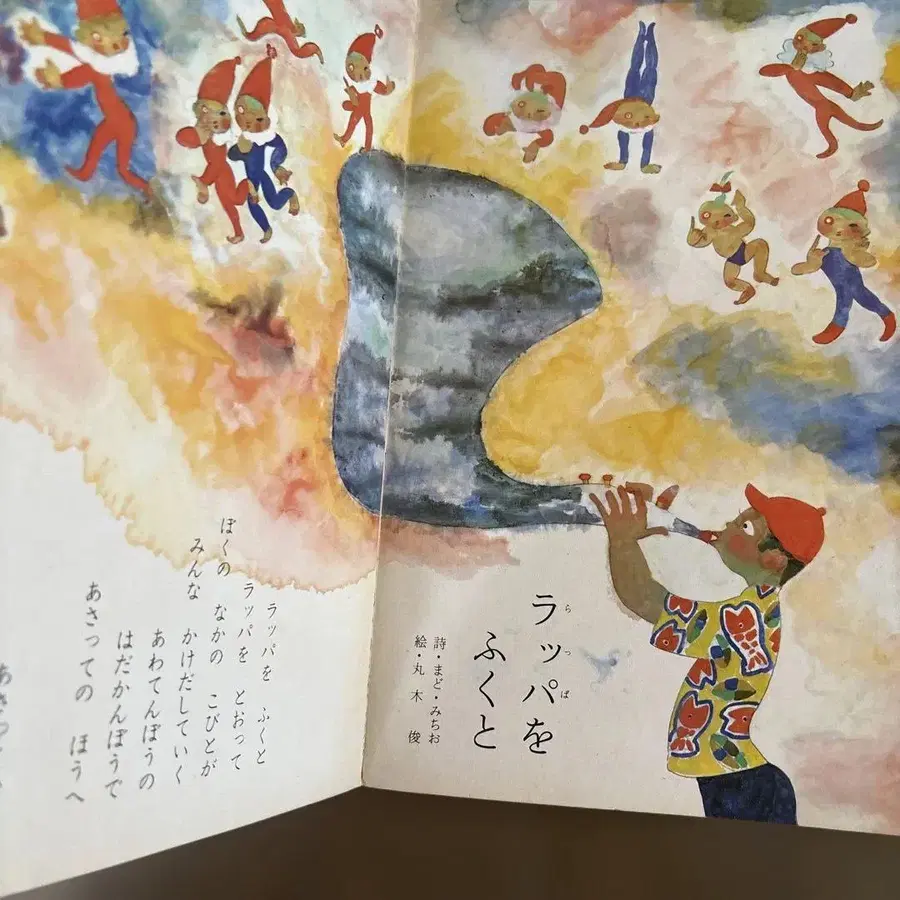 ラッパを
ふくと
詩・まど・みちお
絵・丸木 俊
ラッパを ふくと
ラッパを とおって
ぼくの なかの こびとが
みんな かけだしていく
あわてんぼうの
はだかんぼうで
あさっての ほうへ